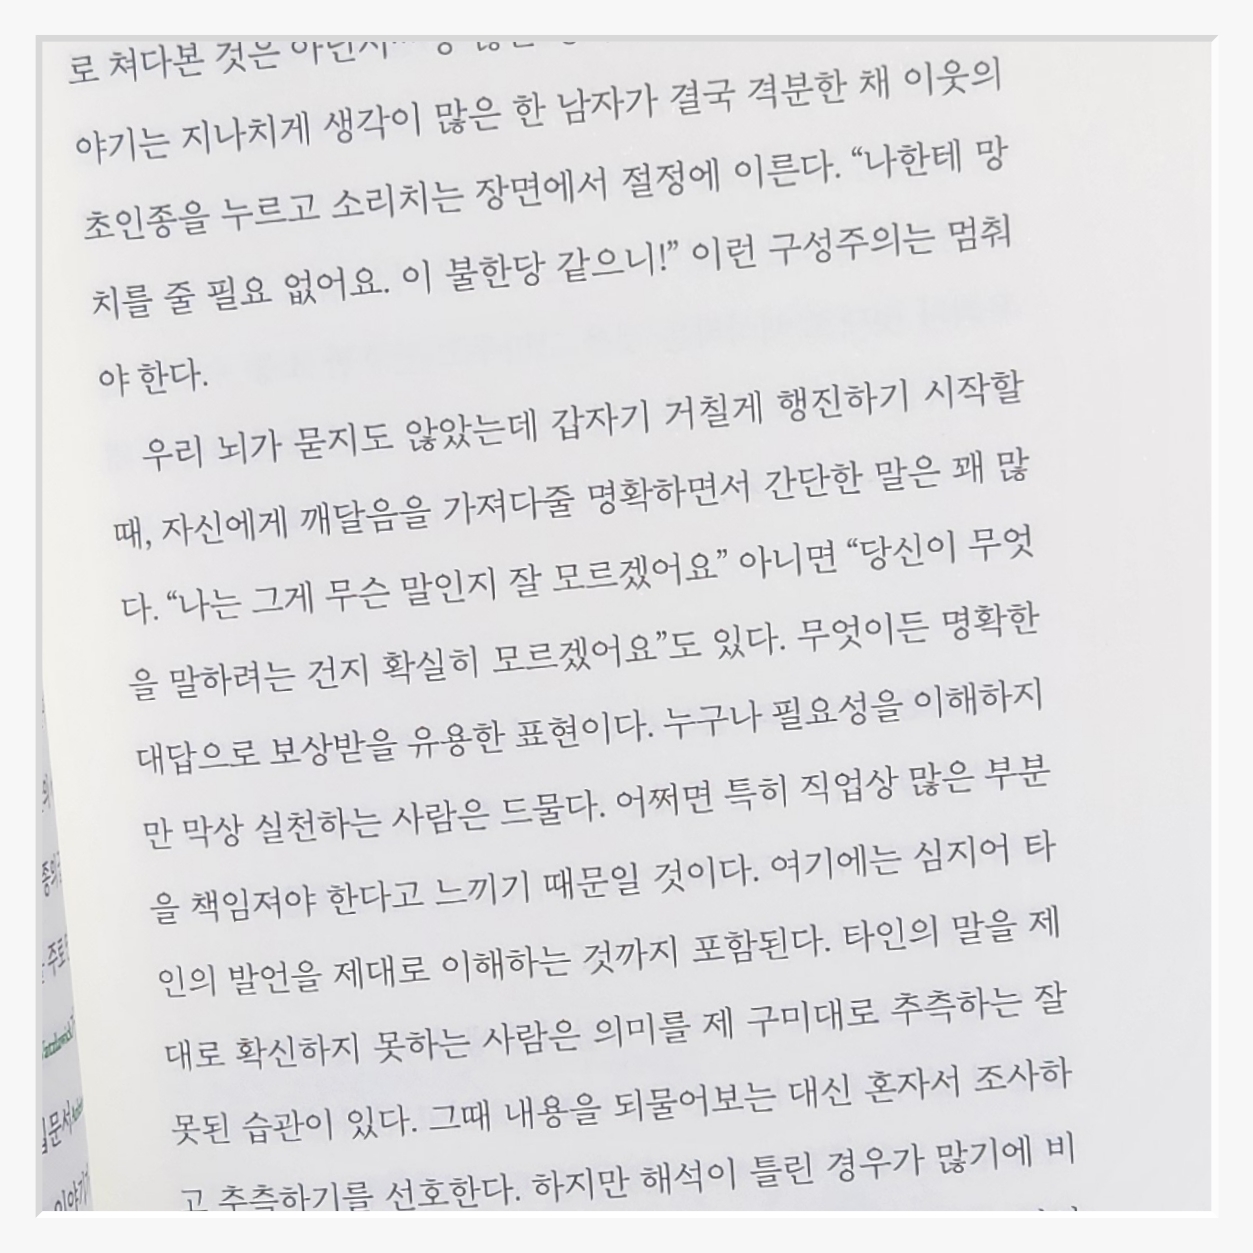 로 쳐다본 것은
야기는 지나치게 생각이 많은 한 남자가 결국 격분한 채 이웃의
초인종을 누르고 소리치는 장면에서 절정에 이른다. “나한테 망
치를 줄 필요 없어요. 이 불한당 같으니!” 이런 구성주의는 멈춰
야 한다.
우리 뇌가 묻지도 않았는데 갑자기 거칠게 행진하기 시작할
때, 자신에게 깨달음을 가져다줄 명확하면서 간단한 말은 꽤 많
다. “나는 그게 무슨 말인지 잘 모르겠어요” 아니면 “당신이 무엇
을 말하려는 건지 확실히 모르겠어요”도 있다. 무엇이든 명확한
대답으로 보상받을 유용한 표현이다. 누구나 필요성을 이해하지
만 막상 실천하는 사람은 드물다. 어쩌면 특히 직업상 많은 부분
을 책임져야 한다고 느끼기 때문일 것이다. 여기에는 심지어 타
인의 발언을 제대로 이해하는 것까지 포함된다. 타인의 말을 제
대로 확신하지 못하는 사람은 의미를 제 구미대로 추측하는 잘
못된 습관이 있다. 그때 내용을 되물어보는 대신 혼자서 조사하
고 추측하기를 선호한다. 하지만 해석이 틀린 경우가 많기에 비